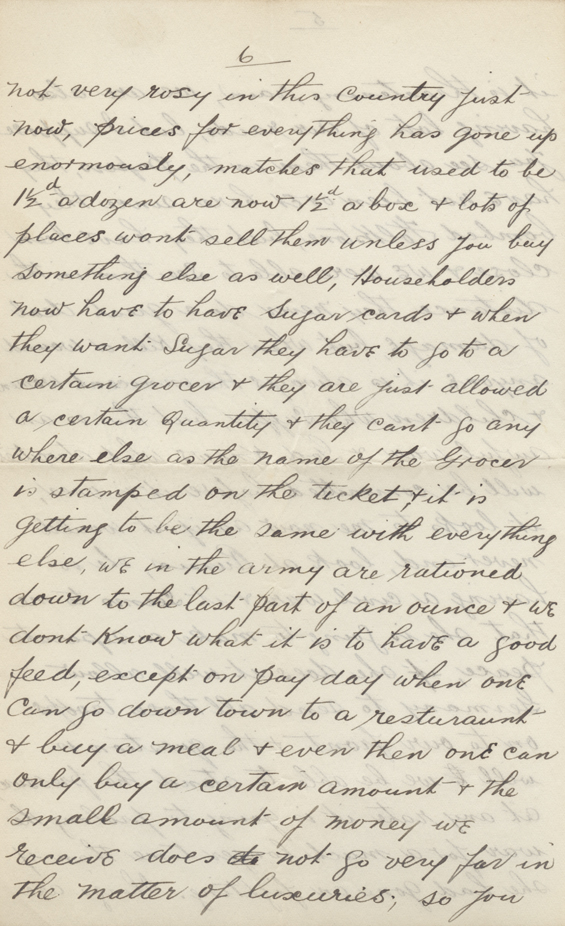 6
not very rosy in this Country just
now, prices for everything has gone up
enormously, matches that used to be
1½d a dozen are now 1½d a box & lots of
places wont sell them unless you buy
something else as well, Householders
now have to have Sugar cards & when
they want Sugar they have to go to a
certain grocer & they are just allowed
a certain Quantity & they cant go any
where else as the name of the Grocer
is stamped on the ticket, & it is
getting to be the same with everything
else, we in the army are rationed
down to the last part of an ounce & we
dont Know what it is to have a good
feed, except on pay day when one
Can go down town to a resturaunt
& buy a meal & even then one can
only buy a certain amount & the
small amount of money we
receive does not go very far in
the matter of luxuries, so you